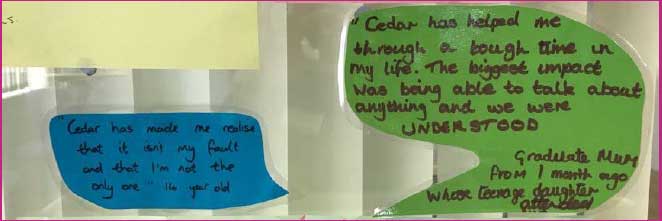 s.
"Cedar has made me realise
that it isn't my fault
and that I'm not the
only one" 16 year old
"Cedar has helped me
through a tough time in
my life. The biggest impact
was being able to talk about
anything and we were
UNDERSTOOD
Graduate Mum
from 1 month ago
whose teenage daughter
attended